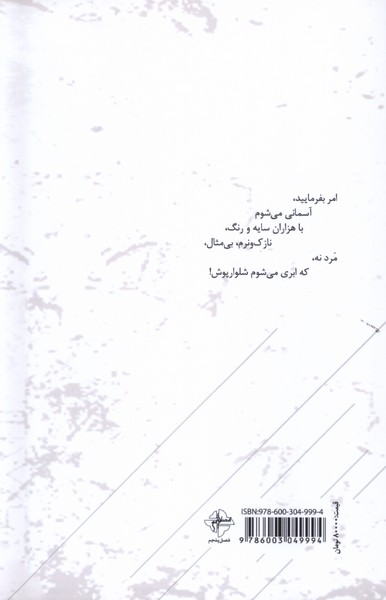 امر بفرمایید،
آسمانی می‌شوم
با هزاران سایه و رنگ،
نازک‌ونرم، بی‌مثال،
مَرد نه،
که ابری می‌شوم شلوارپوش!
ISBN:978-600-304-999-4
9 786003 049994
فصل پنجم
قیمت: ۸۰۰۰۰ تومان